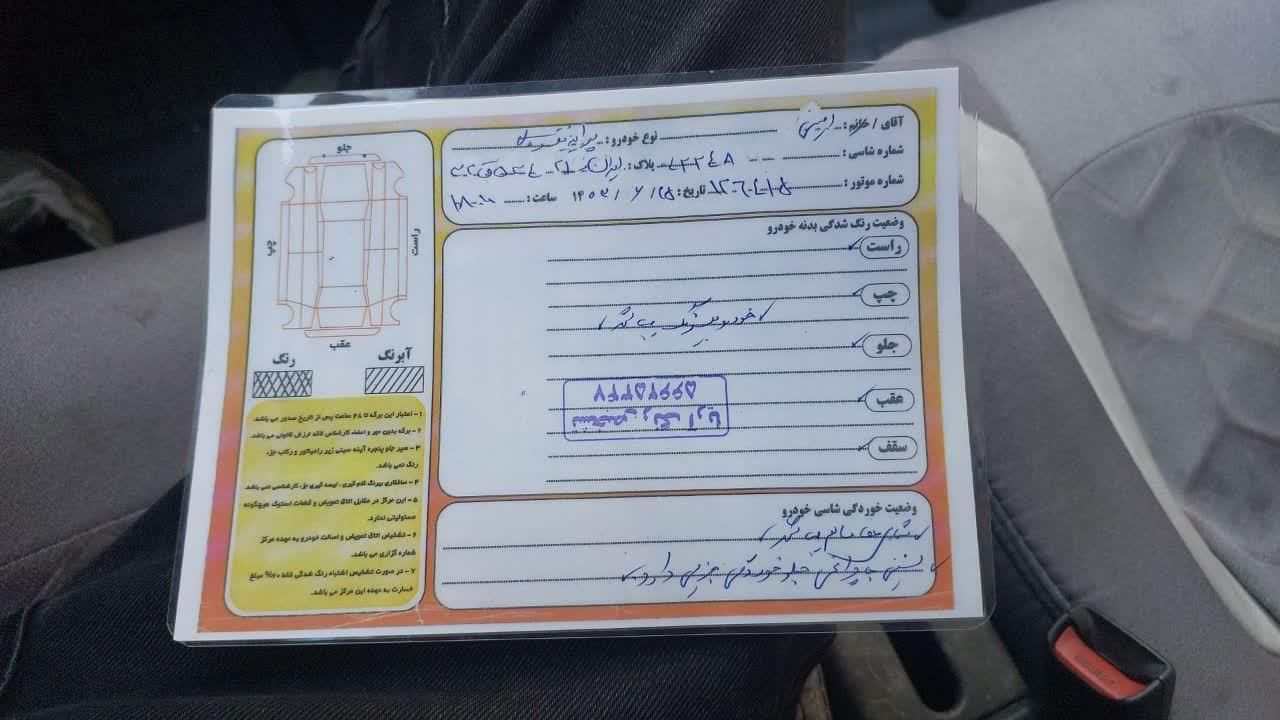 آقای / خانم : امینی نوع خودرو :
شماره شاسی : پلاک : ایران
شماره موتور : تاریخ : ۱۴۰۳/۶/۱۵ ساعت :
وضعیت رنگ شدگی بدنه خودرو
راست
چپ
خودرو بیرنگ می باشد
جلو
عقب
سقف
تشخیص رنگ آریا
۵۶۶۲۵۳۴۷
وضعیت خوردگی شاسی خودرو
شاسی ها سالم می باشد
سینی جلو خوردگی جزیی دارد
جلو
راست
چپ
عقب
آبرنگ
رنگ
۱ - اعتبار این برگه تا ۴۸ ساعت پس از تاریخ صدور می باشد.
۲ - برگه بدون مهر و امضاء کارشناس فاقد ارزش قانونی می باشد.
۳ - سپر جلو پنجره آینه سینی زیر رادیاتور و رکاب جزء
رنگ نمی باشد.
۴ - صافکاری بیرنگ قلم گیری ، لیسه گیری جزء کارشناسی نمی باشد.
۵ - این مرکز در مقابل اتاق تعویض و قطعات استوک هیچگونه
مسئولیتی ندارد.
۶ - تشخیص اتاق تعویض و اصالت خودرو به عهده مرکز
شماره گزاری می باشد.
۷ - در صورت تشخیص اشتباه رنگ شدگی فقط ۵۰% مبلغ
خسارت به عهده این مرکز می باشد.